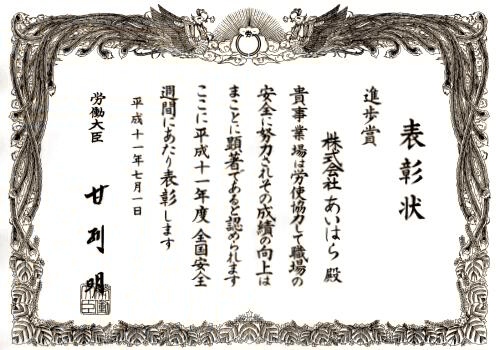 表彰状
進歩賞
株式会社 あいはら 殿
貴事業場は労使協力して職場の
安全に努力されその成績の向上は
まことに顕著であると認められます
ここに平成十一年度全国安全
週間にあたり表彰します
平成十一年七月一日
労働大臣
甘利明